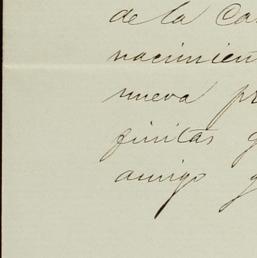 de la Ca
nacimien
nueva pr
finitas g
amigo y